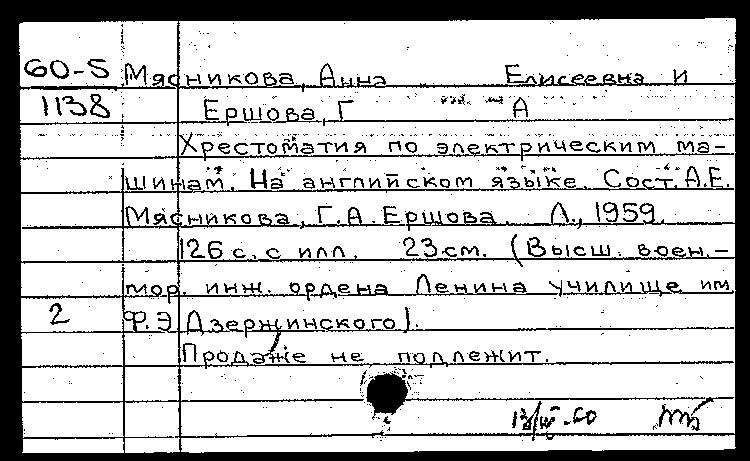 60-5 Мясникова, Анна Елисеевна и
1138 Ершова, Г А
Хрестоматия по электрическим ма-
шинам. На английском языке. Сост. А.Е.
Мясникова, Г.А. Ершова. Л., 1959.
126 с. с илл. 23 см. (Высш. воен.-
мор. инж. ордена Ленина училище им
2 Ф.Э Дзержинского).
Продаже не подлежит.